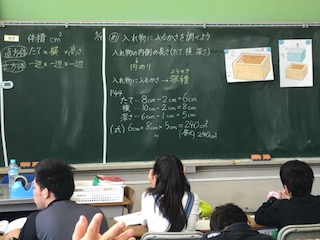 体積 cm³
直方体 たて×横×高さ
立方体 一辺×一辺×一辺
め 入れ物に入るかさを調べよう
入れ物の内側の長さ(たて、横、深さ)
内のり
入れ物に入るかさ→容積
ようせき
P44
たて…8cm-2cm=6cm
横…10cm-2cm=8cm
深さ…6cm-1cm=5cm
(式) 6cm×8cm×5cm=240cm³
(答え) 240cm³